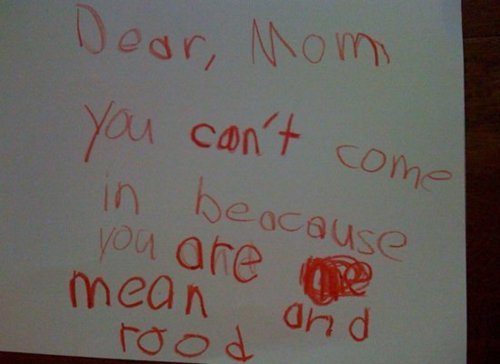 Dear, Mom
you can't come
in beacause
you are
mean and
rood